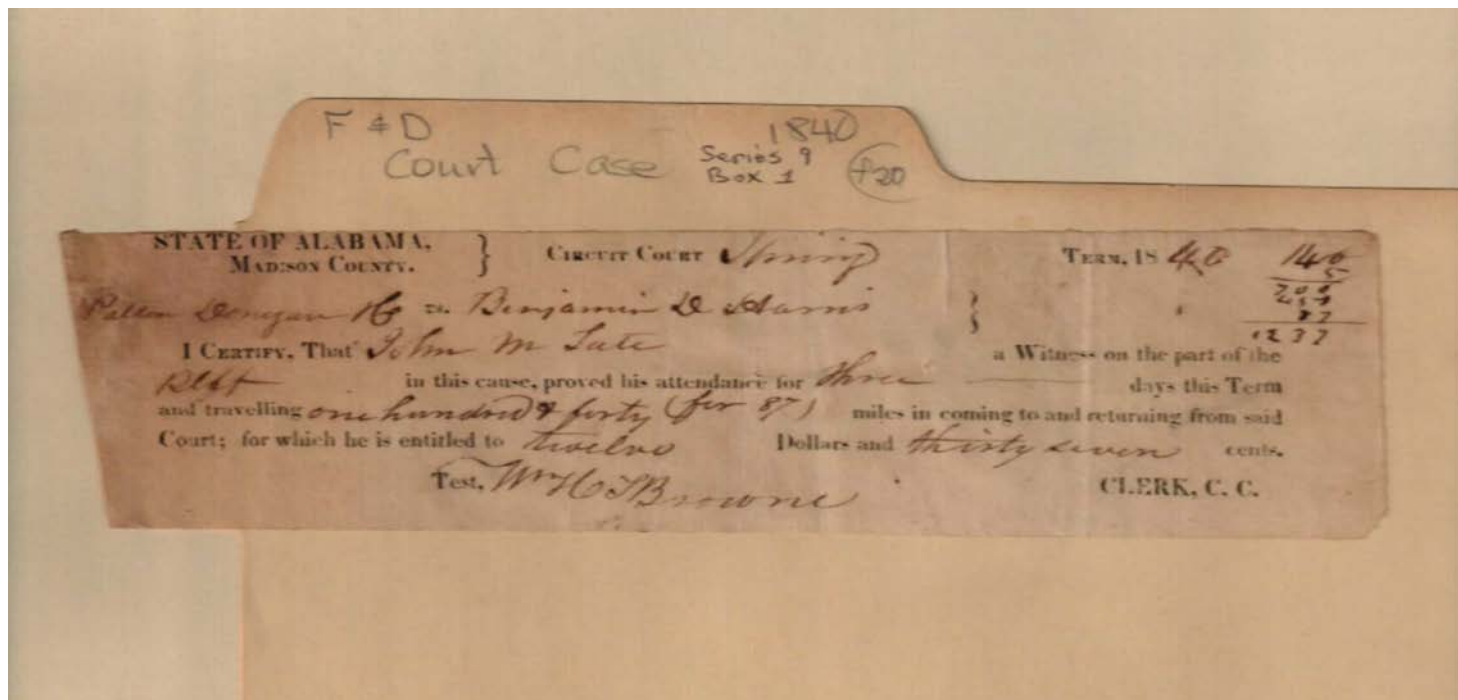 F & D 1840
Court Case Series 9
Box 1 f20
STATE OF ALABAMA,
MADISON COUNTY. } CIRCUIT COURT Spring TERM, 1840 140
5
Patton Donegan & Co vs. Benjamin D Harris }
87
1237
I CERTIFY, That John M Tate a Witness on the part of the
Plff in this cause, proved his attendance for three days this Term
and travelling one hundred & forty (fer 87) miles in coming to and returning from said
Court; for which he is entitled to twelve Dollars and thirty seven cents.
Test, Wm H T Browne CLERK, C. C.